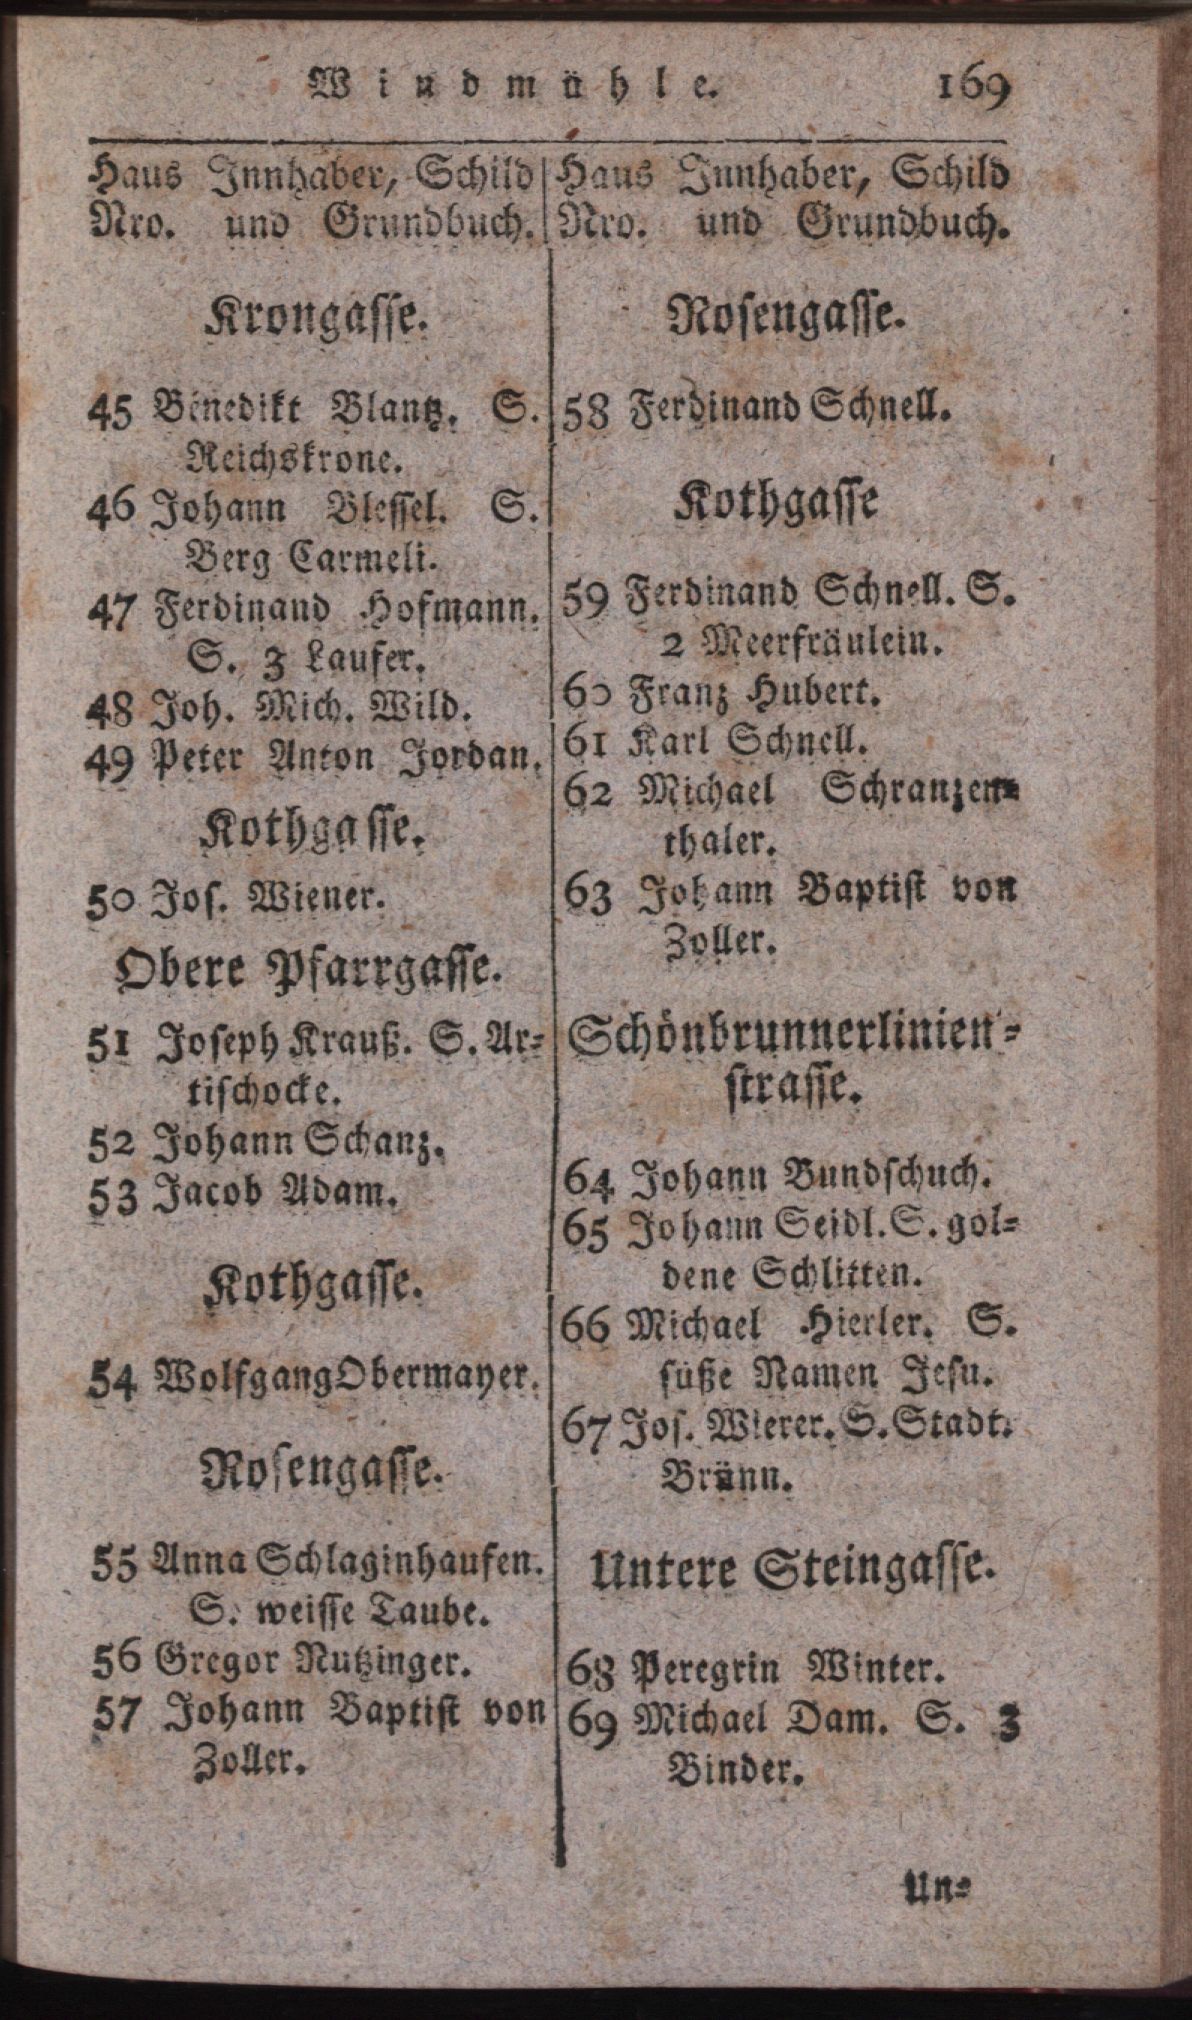 Windmühle. 169
Haus Innhaber, Schild
Nro. und Grundbuch.
Krongasse.
45 Benedikt Blantz. S.
Reichskrone.
46 Johann Blessel. S.
Berg Carmeli.
47 Ferdinand Hofmann.
S. 3 Laufer.
48 Joh. Mich. Wild.
49 Peter Anton Jordan.
Kothgasse.
50 Jos. Wiener.
Obere Pfarrgasse.
51 Joseph Krauß. S. Ar-
tischocke.
52 Johann Schanz.
53 Jacob Adam.
Kothgasse.
54 Wolfgang Obermayer.
Rosengasse.
55 Anna Schlaginhaufen.
S. weisse Taube.
56 Gregor Nutzinger.
57 Johann Baptist von
Zoller.
Haus Innhaber, Schild
Nro. und Grundbuch.
Rosengasse.
58 Ferdinand Schnell.
Kothgasse
59 Ferdinand Schnell. S.
2 Meerfräulein.
60 Franz Hubert.
61 Karl Schnell.
62 Michael Schranzen-
thaler.
63 Johann Baptist von
Zoller.
Schönbrunnerlinien-
strasse.
64 Johann Bundschuch.
65 Johann Seidl. S. gol-
dene Schlitten.
66 Michael Hierler. S.
süße Namen Jesu.
67 Jos. Wierer. S. Stadt.
Brünn.
Untere Steingasse.
68 Peregrin Winter.
69 Michael Dam. S. 3
Binder.
Un-